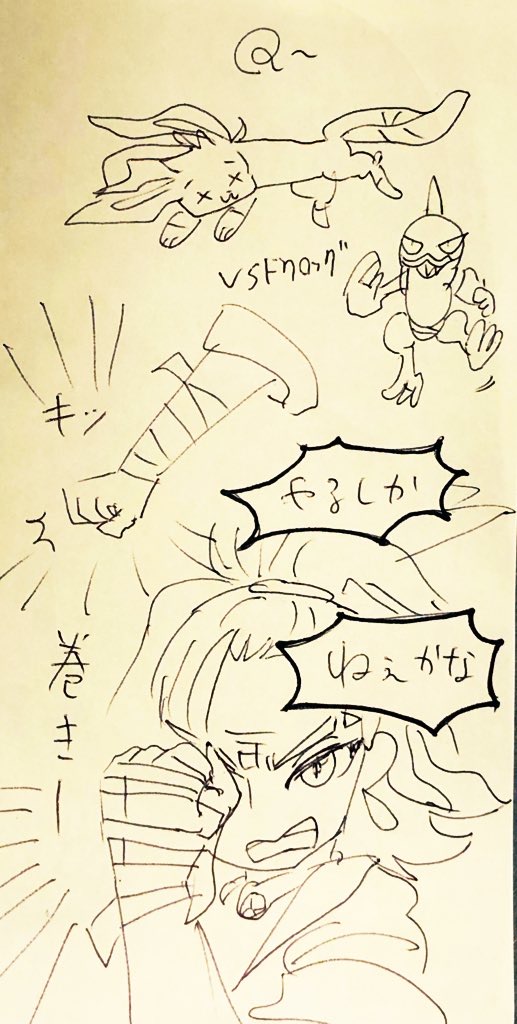 Q~
VSドクロッグ
キッ
やるしか
ねぇかな
巻きー